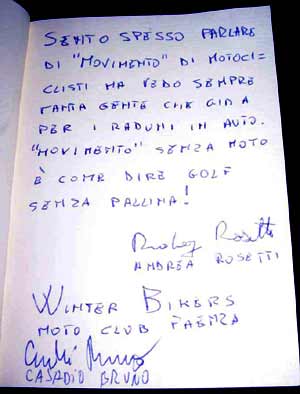 SENTO SPESSO PARLARE
DI "MOVIMENTO" DI MOTOCI=
CLISTI MA VEDO SEMPRE
TANTA GENTE CHE GIRA
PER I RADUNI IN AUTO.
"MOVIMENTO" SENZA MOTO
È COME DIRE GOLF
SENZA PALLINA!
ANDREA ROSETTI
WINTER BIKERS
MOTO CLUB FAENZA
CASADIO BRUNO